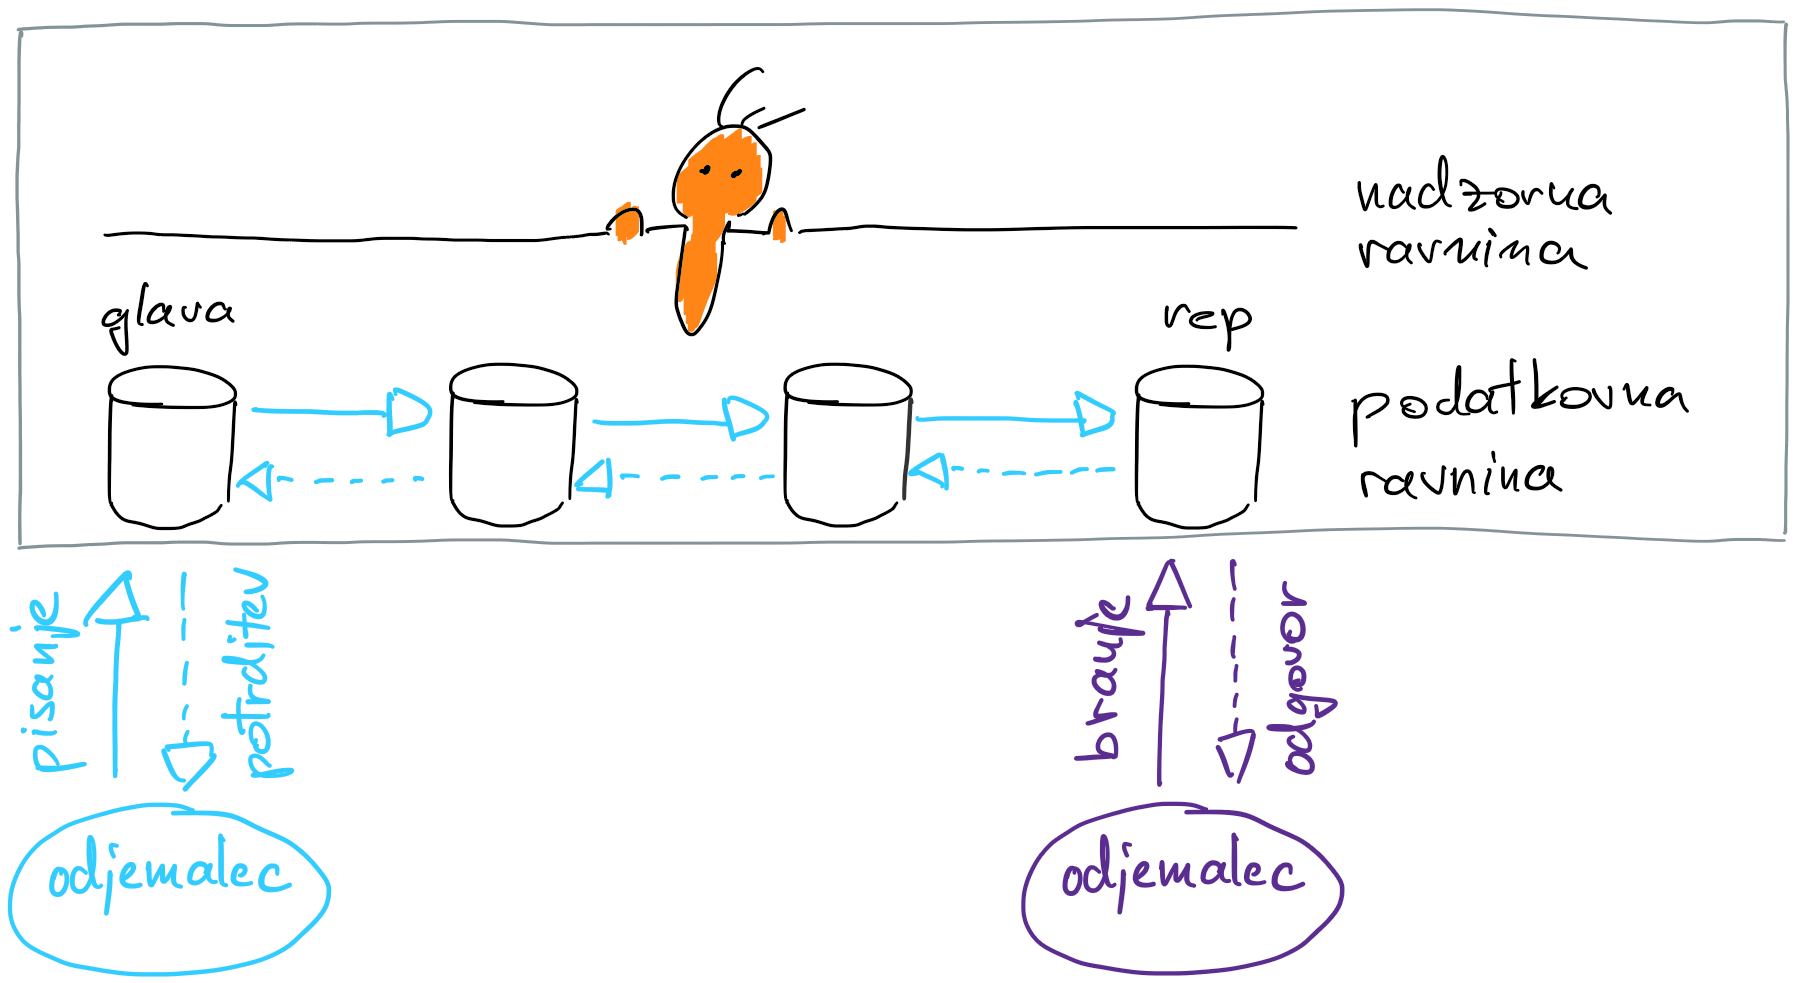 nadzorna
ravnina
glava
rep
podatkovna
ravnina
pisanje
potrditev
branje
odgovor
odjemalec
odjemalec